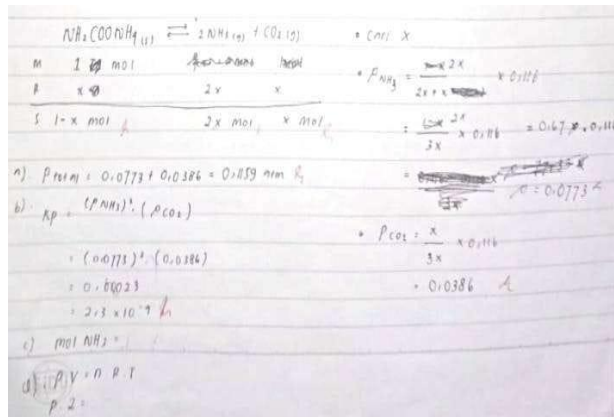 NH₂COONH₄ (s) ⇌ 2NH₃ (g) + CO₂ (g)
M 1 mol
R x 2x x
S 1-x mol 2x mol x mol
a) P total = 0,0773 + 0,0386 = 0,1159 atm
b) Kp = (PNH₃)² . (PCO₂)
= (0,0773)² . (0,0386)
= 0,00023
= 2,3 x 10
c) mol NH₃ =
d) PV = n R.T
P. 2 =
• Cari X
• PNH₃ = 2x / 2x + x x 0,116
= 2x / 3x x 0,116 = 0,67 x 0,116
=
= 0,0773
• PCO₂ = x / 3x x 0,116
= 0,0386